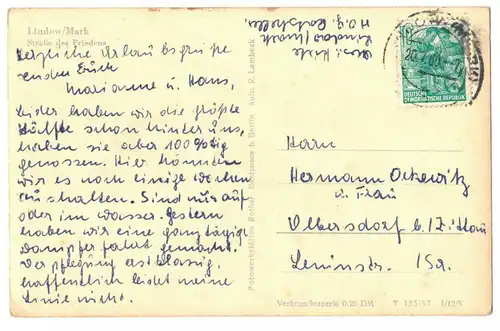 Lindow/Mark
Straße des Friedens
Herzliche Urlaubsgrüße
senden Euch
Marianne u. Hans,
Leider haben wir die größte
Hälfte schon hinter uns,
haben sie aber 100%tig
genossen. Hier könnten
wir es noch einige Wochen
aushalten. Sind nur auf
oder im Wasser. Gestern
haben wir eine ganztägige
Dampferfahrt gemacht.
Verpflegung erstklassig,
hoffentlich leidet meine
Linie nicht.
Lindow/Mark
H.O.G. Ratskeller
DEUTSCHE
DEMOKRATISCHE REPUBLIK
Herrn
Hermann Ockewitz
u. Frau
Olbersdorf b./Zittau
Leninstr. 15a.
Aufn. R. Lambeck
Verbraucherpreis 0,20 DM
1/12/5